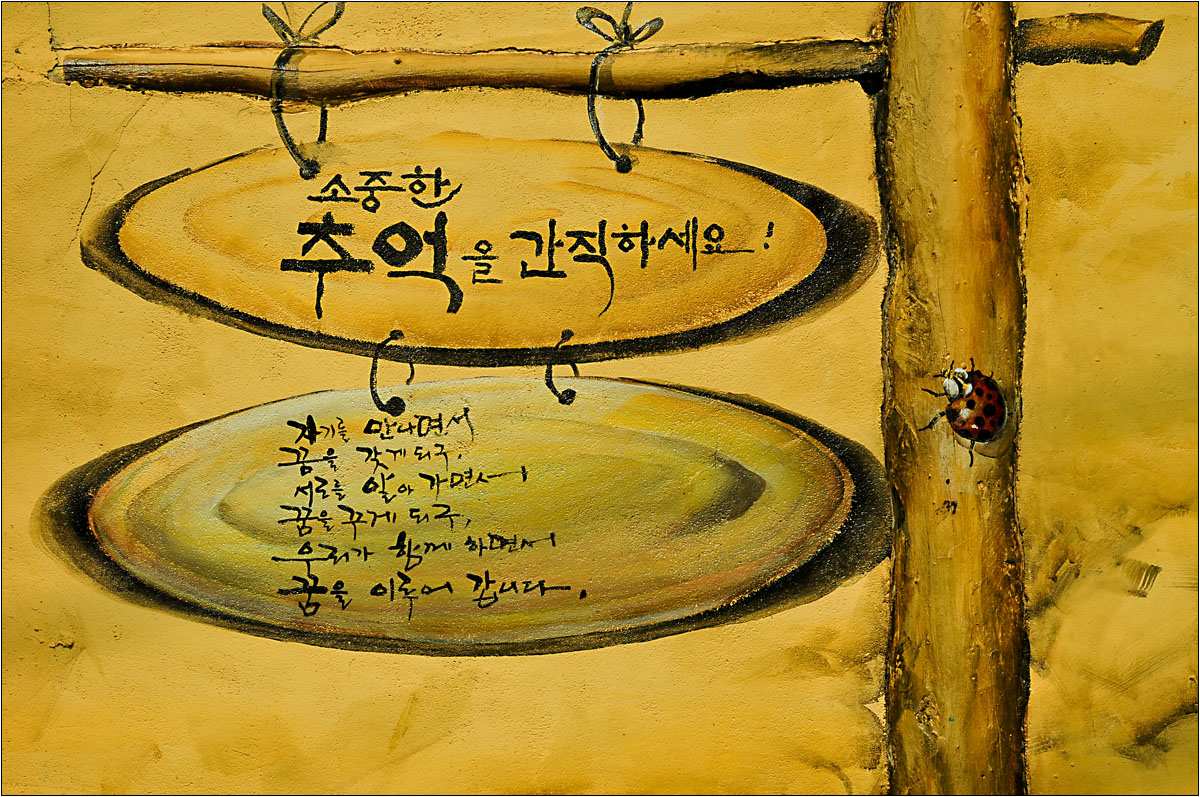 소중한
추억을 간직하세요!
자기를 만나면서
꿈을 갖게 되구,
서로를 알아 가면서
꿈을 꾸게 되구,
우리가 함께 하면서
꿈을 이루어 갑니다.